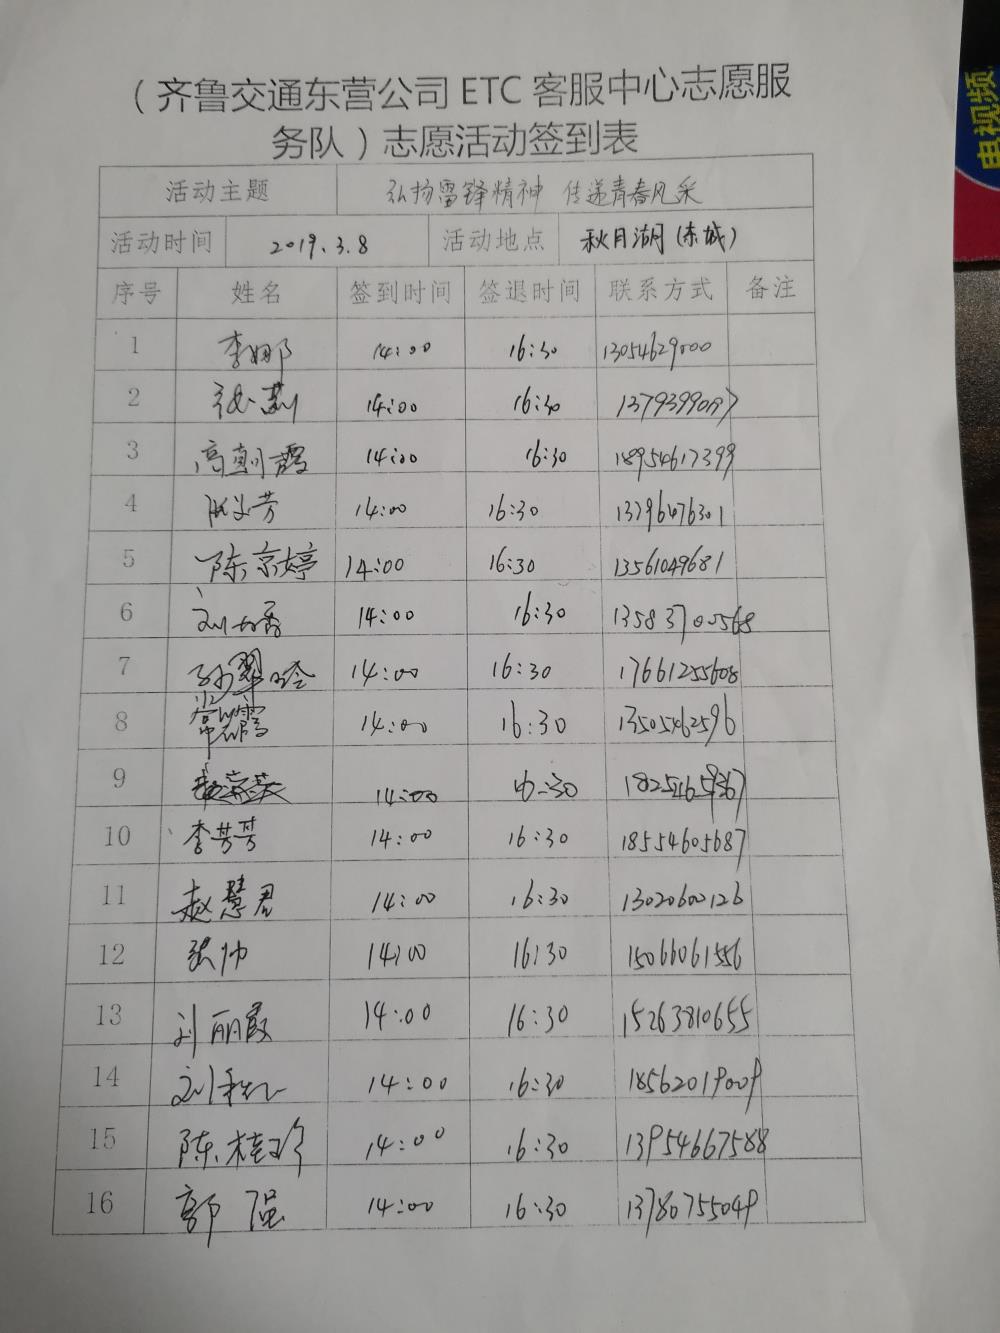 电视频
（齐鲁交通东营公司 ETC 客服中心志愿服
务队）志愿活动签到表
活动主题 弘扬雷锋精神 传递青春风采
活动时间 2019.3.8 活动地点 秋月湖（东城）
序号 姓名 签到时间 签退时间 联系方式 备注
1 李娜 14:00 16:30 13054629000
2 张莉 14:00 16:30
3 高朝霞 14:00 16:30 18954617399
4 14:00 16:30 13796076301
5 陈京婷 14:00 16:30 13561049681
6 刘 14:00 16:30
7 孙翠玲 14:00 16:30 17661255608
8 常 14:00 16:30 13505462596
9 14:00 16:30 18254659367
10 李芳芳 14:00 16:30 18554605687
11 赵慧君 14:00 16:30 13020600126
12 张帅 14:00 16:30 15066061556
13 刘丽霞 14:00 16:30 15263810655
14 刘 14:00 16:30 18562019009
15 陈桂玲 14:00 16:30 13954667588
16 郭强 14:00 16:30 13780755049